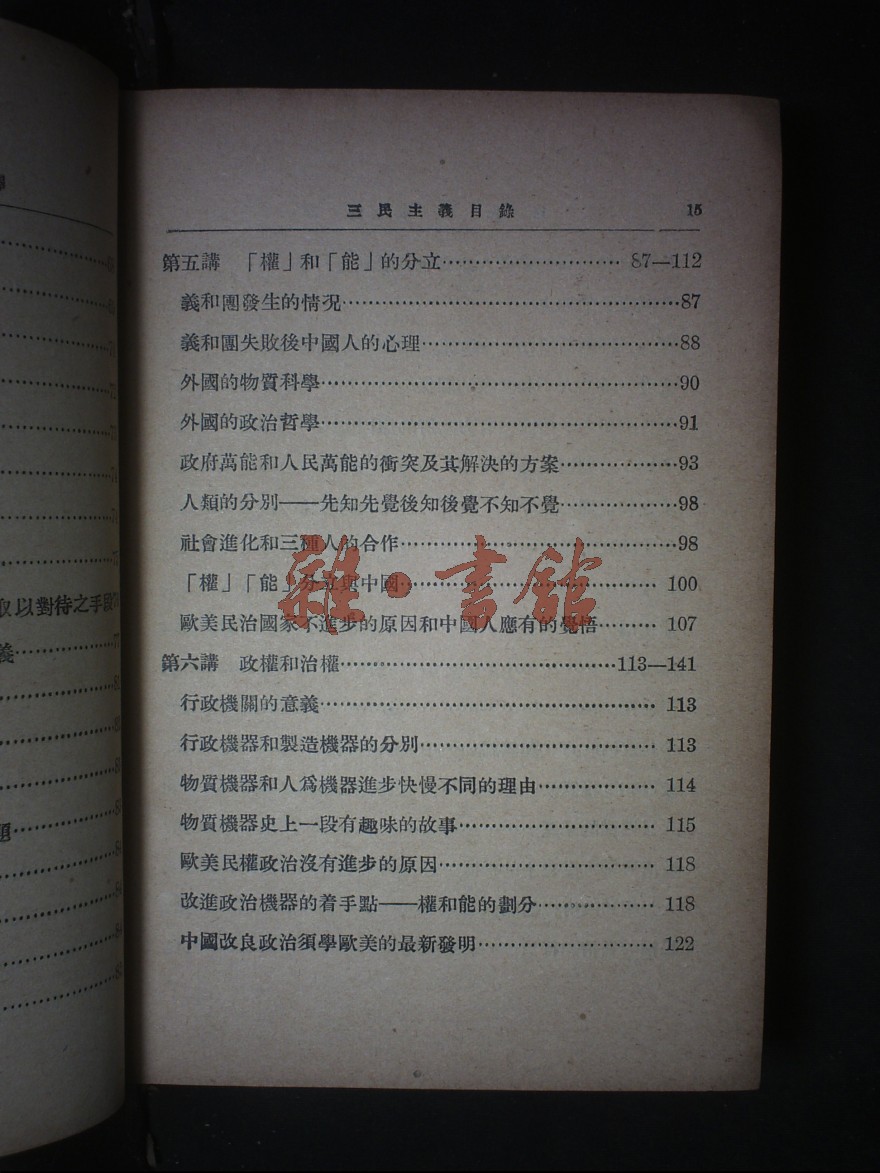 三民主義目錄 15
第五講 「權」和「能」的分立………………………… 87—112
義和團發生的情況……………………………………………87
義和團失敗後中國人的心理…………………………………88
外國的物質科學………………………………………………90
外國的政治哲學………………………………………………91
政府萬能和人民萬能的衝突及其解決的方案………………93
人類的分別——先知先覺後知後覺不知不覺………………98
社會進化和三種人的合作……………………………………98
「權」「能」分立與中國…………………………………… 100
歐美民治國家不進步的原因和中國人應有的覺悟……… 107
第六講 政權和治權……………………………………113—141
行政機關的意義…………………………………………… 113
行政機器和製造機器的分別……………………………… 113
物質機器和人爲機器進步快慢不同的理由……………… 114
物質機器史上一段有趣味的故事………………………… 115
歐美民權政治沒有進步的原因…………………………… 118
改進政治機器的着手點——權和能的劃分……………… 118
中國改良政治須學歐美的最新發明……………………… 122
取以對待之手段
義
題
雜·書館